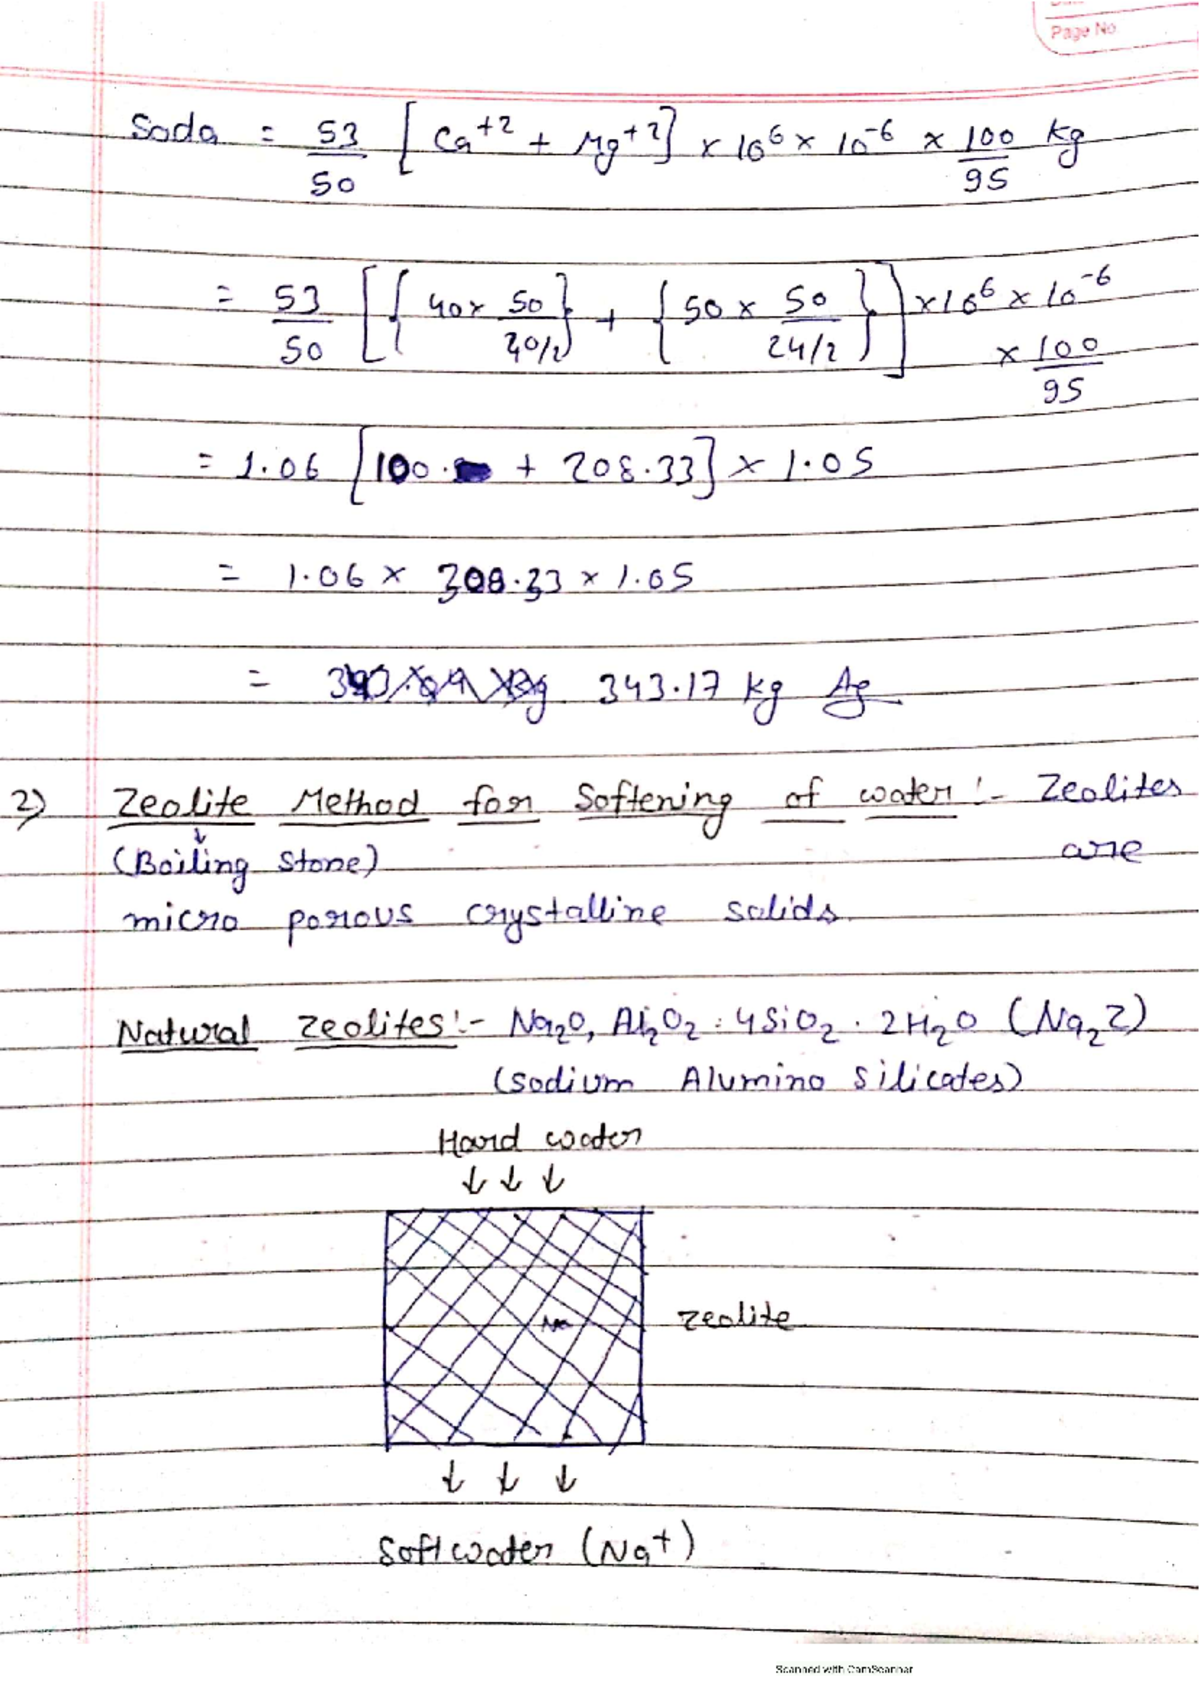 Page No
Soda = 53/50 [Ca+2 + Mg+2] × 10^6 × 10^-6 × 100/95 Kg
= 53/50 [{40 × 50/40/2} + {50 × 50/24/2}] × 10^6 × 10^-6 × 100/95
= 1.06 [100. + 208.33] × 1.05
= 1.06 × 308.33 × 1.05
= 343.17 kg
2) Zeolite Method for Softening of water :- Zeolites are
↓
(Boiling Stone)
micro porous crystalline solids.
Natural Zeolites :- Na2O, Al2O2 . 4SiO2 . 2H2O (Na2Z)
(Sodium Alumino Silicates)
Hard water
↓ ↓ ↓
Na
zeolite
↓ ↓ ↓
Soft water (Na+)
Scanned with CamScanner